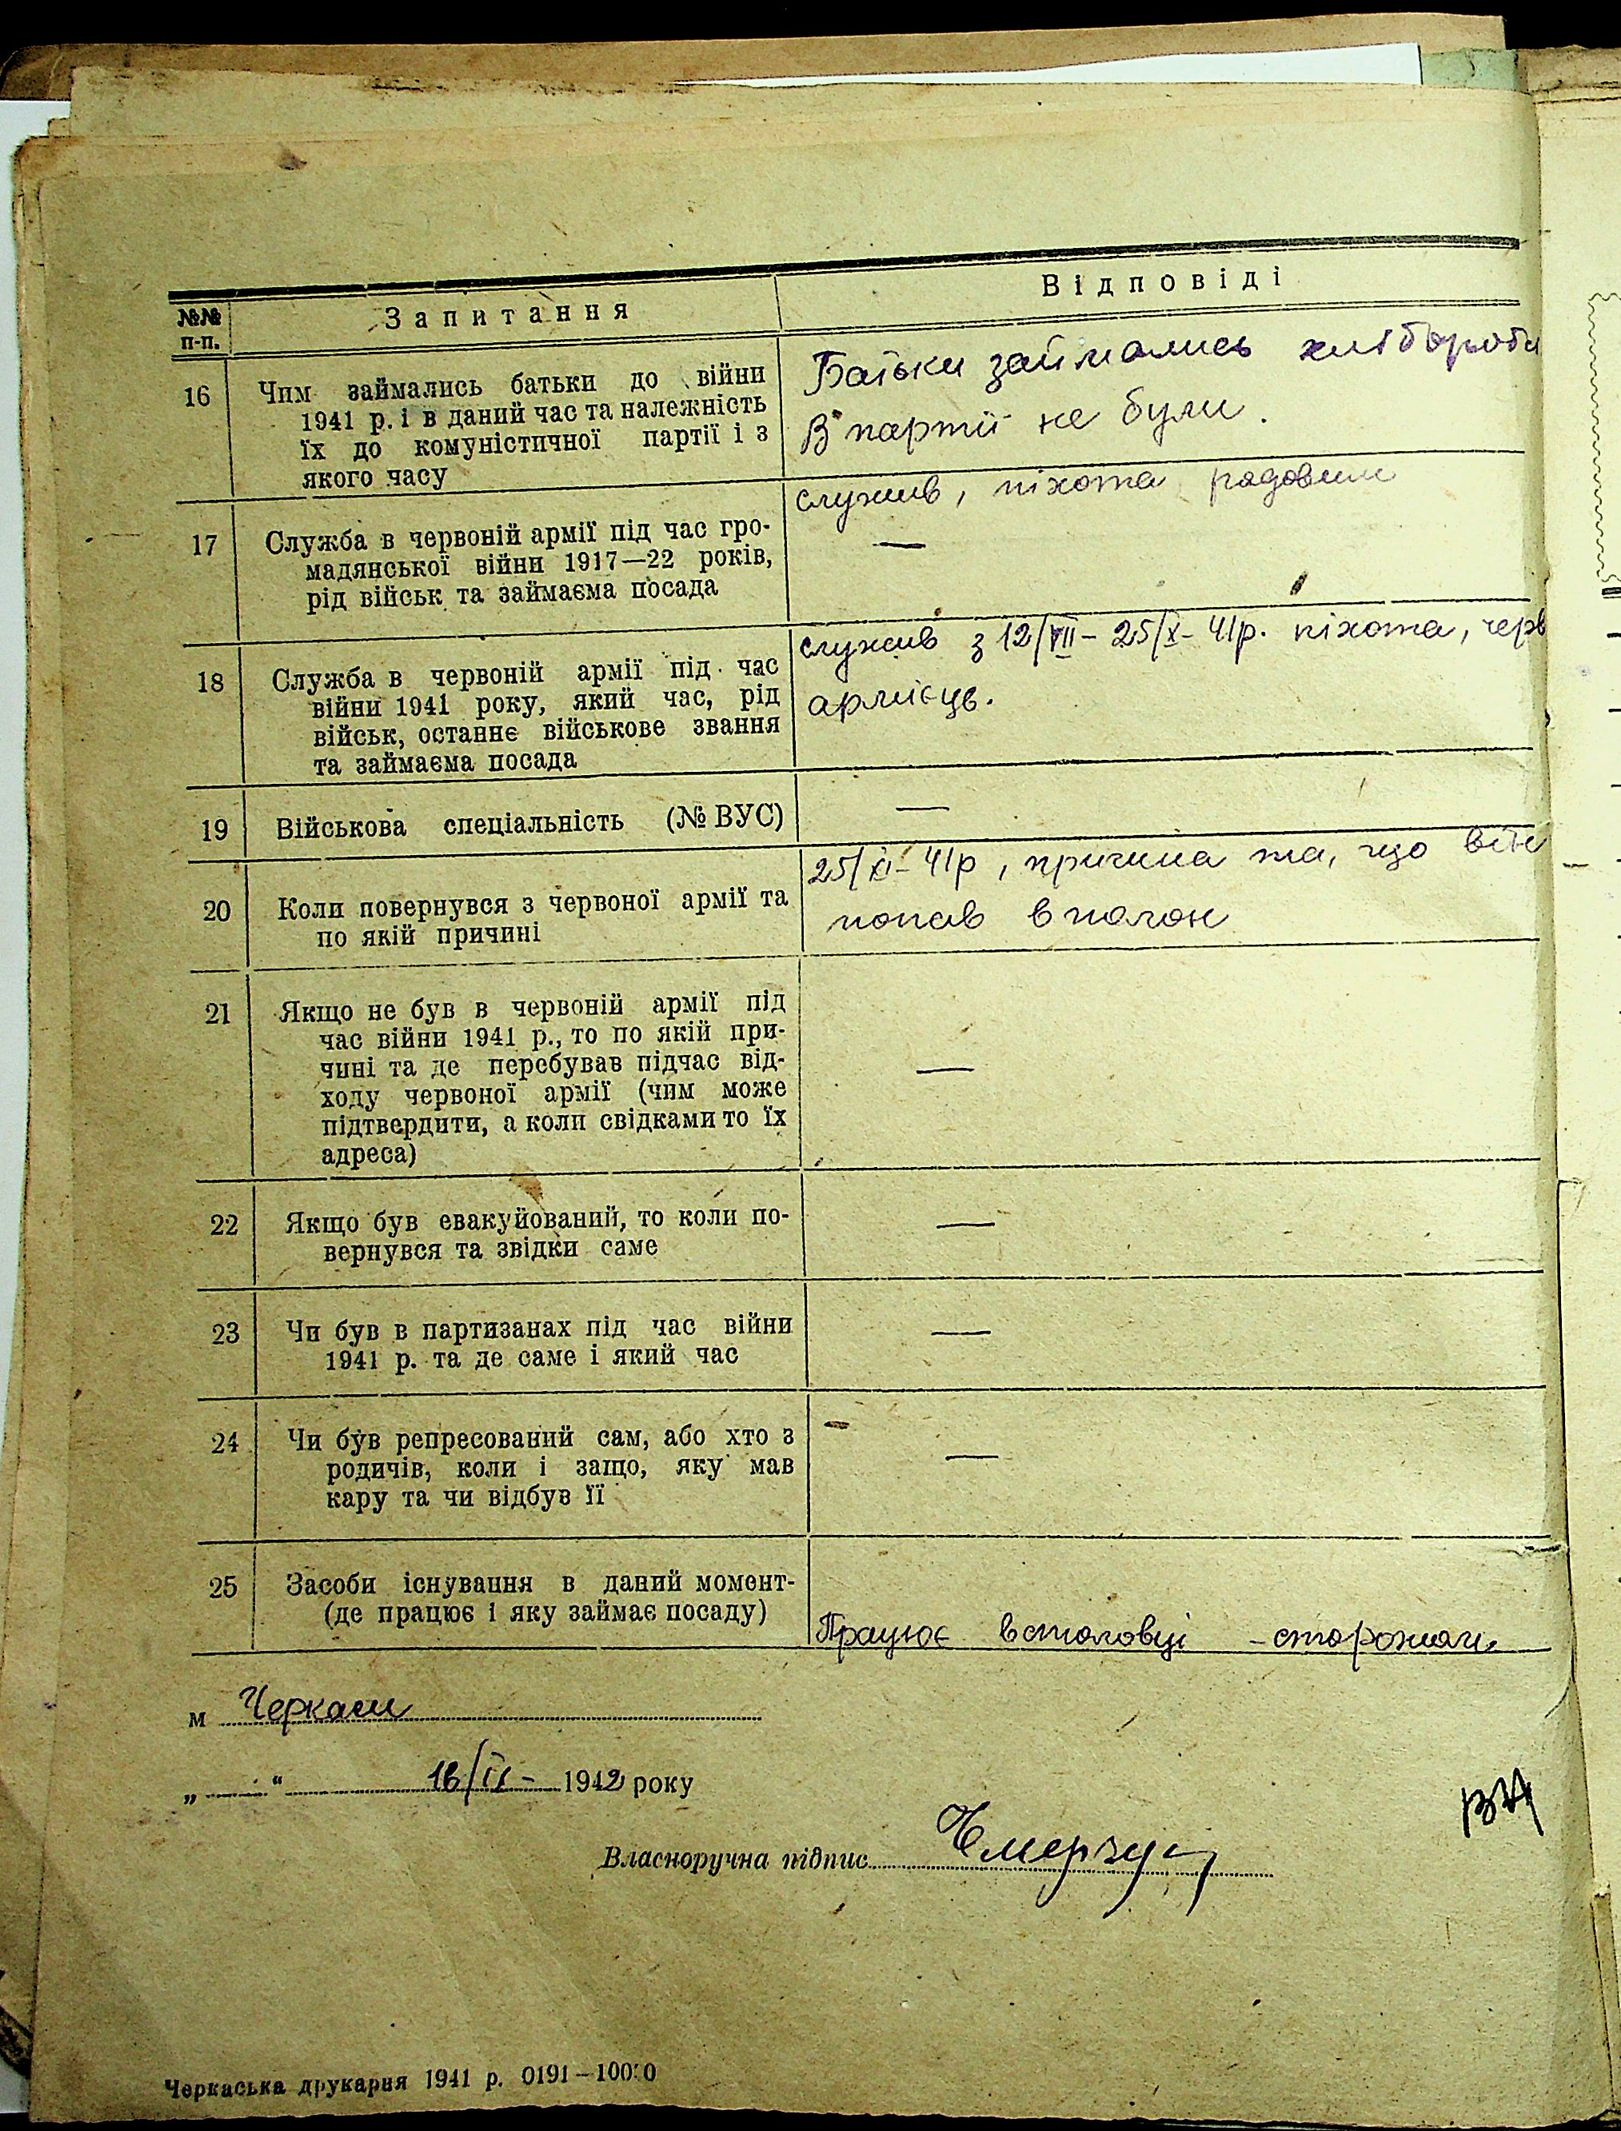 №№ п-п.
Запитання
Відповіді
16
Чим займались батьки до війни
1941 р. і в даний час та належність
їх до комуністичної партії і з
якого часу
Батьки займались хлібороб
В партії не були.
17
Служба в червоній армії під час гро-
мадянської війни 1917—22 років,
рід військ та займаєма посада
служив, піхота рядовим
—
18
Служба в червоній армії під час
війни 1941 року, який час, рід
військ, останнє військове звання
та займаєма посада
служив з 12/VII – 25/X – 41р. піхота, черв
армієць.
19
Військова спеціальність (№ ВУС)
—
20
Коли повернувся з червоної армії та
по якій причині
25/XI – 41р, причина та, що він
попав в полон
21
Якщо не був в червоній армії під
час війни 1941 р., то по якій при-
чині та де перебував підчас від-
ходу червоної армії (чим може
підтвердити, а коли свідками то їх
адреса)
—
22
Якщо був евакуйований, то коли по-
вернувся та звідки саме
—
23
Чи був в партизанах під час війни
1941 р. та де саме і який час
—
24
Чи був репресований сам, або хто з
родичів, коли і защо, яку мав
кару та чи відбув її
—
25
Засоби існування в даний момент-
(де працює і яку займає посаду)
Працює встоловці – сторожом
м Черкаси
„ — “ 16/II – 1942 року
Власноручна підпис
Черкаська друкарня 1941 р. 0191 – 10000